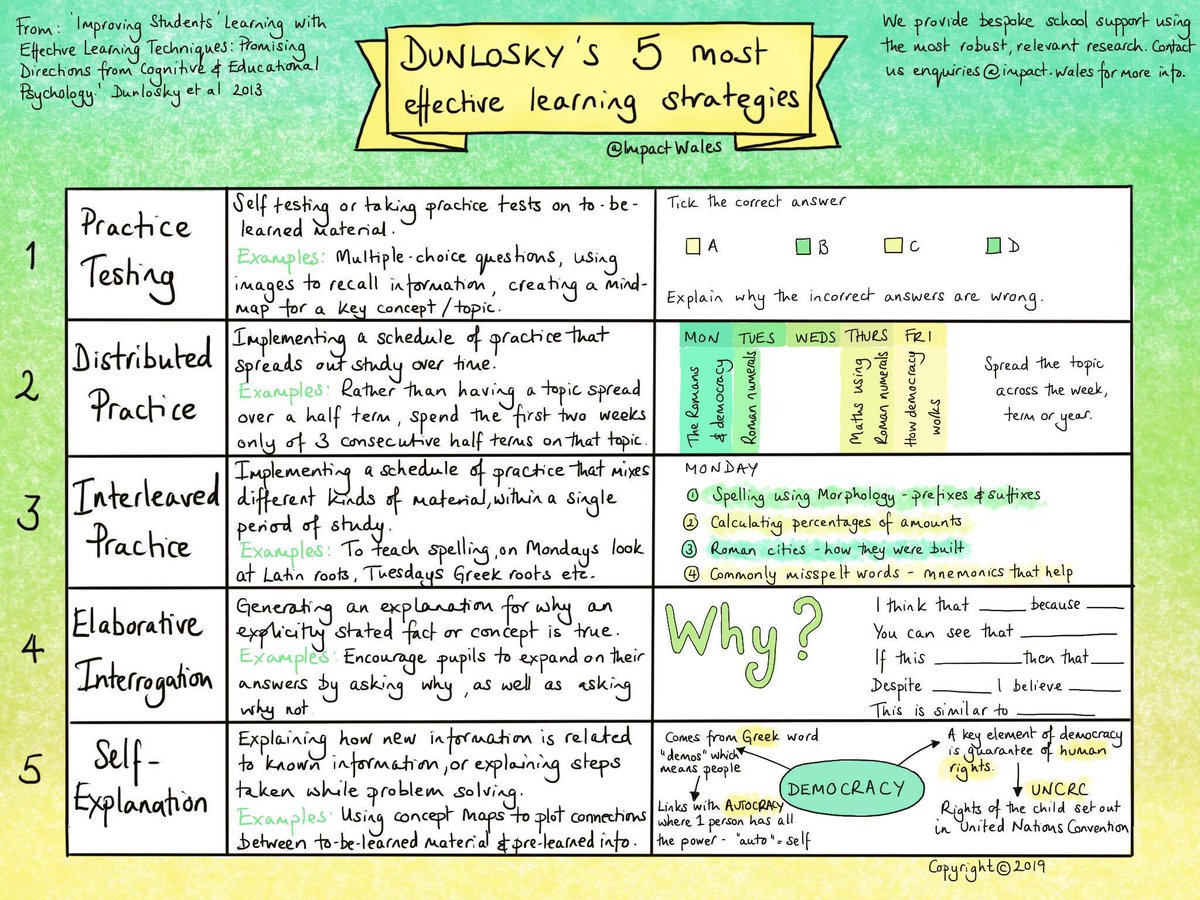 From: 'Improving Students' Learning with
Effective Learning Techniques: Promising
Directions from Cognitive & Educational
Psychology.' Dunlosky et al 2013
DUNLOSKY'S 5 most
effective learning strategies
@Impact Wales
We provide bespoke school support using
the most robust, relevant research. Contact
us enquiries@impact.wales for more info.
1
Practice
Testing
Self testing or taking practice tests on to-be-
learned material.
Examples: Multiple-choice questions, using
images to recall information, creating a mind-
map for a key concept/topic.
Tick the correct answer
A B C D
Explain why the incorrect answers are wrong.
2
Distributed
Practice
Implementing a schedule of practice that
spreads out study over time.
Examples: Rather than having a topic spread
over a half term, spend the first two weeks
only of 3 consecutive half terms on that topic.
MON TUES WEDS THURS FRI
The Romans
& democracy
Roman numerals
Maths using
Roman numerals
How democracy
works
Spread the topic
across the week,
term or year.
3
Interleaved
Practice
Implementing a schedule of practice that mixes
different kinds of material, within a single
period of study.
Examples: To teach spelling, on Mondays look
at Latin roots, Tuesdays Greek roots etc.
MONDAY
1 Spelling using Morphology - prefixes & suffixes
2 Calculating percentages of amounts
3 Roman cities - how they were built
4 Commonly misspelt words - mnemonics that help
4
Elaborative
Interrogation
Generating an explanation for why an
explicitly stated fact or concept is true.
Examples: Encourage pupils to expand on their
answers by asking why, as well as asking
why not
Why?
I think that ______ because ____
You can see that ____________
If this __________ then that ____
Despite _______ I believe ______
This is similar to __________
5
Self-
Explanation
Explaining how new information is related
to known information, or explaining steps
taken while problem solving.
Examples: Using concept maps to plot connections
between to-be-learned material & pre-learned info.
Comes from Greek word
"demos" which
means people
Links with AUTOCRACY
where 1 person has all
the power - "auto" = self
DEMOCRACY
A key element of democracy
is guarantee of human
rights.
UNCRC
Rights of the child set out
in United Nations Convention
Copyright © 2019